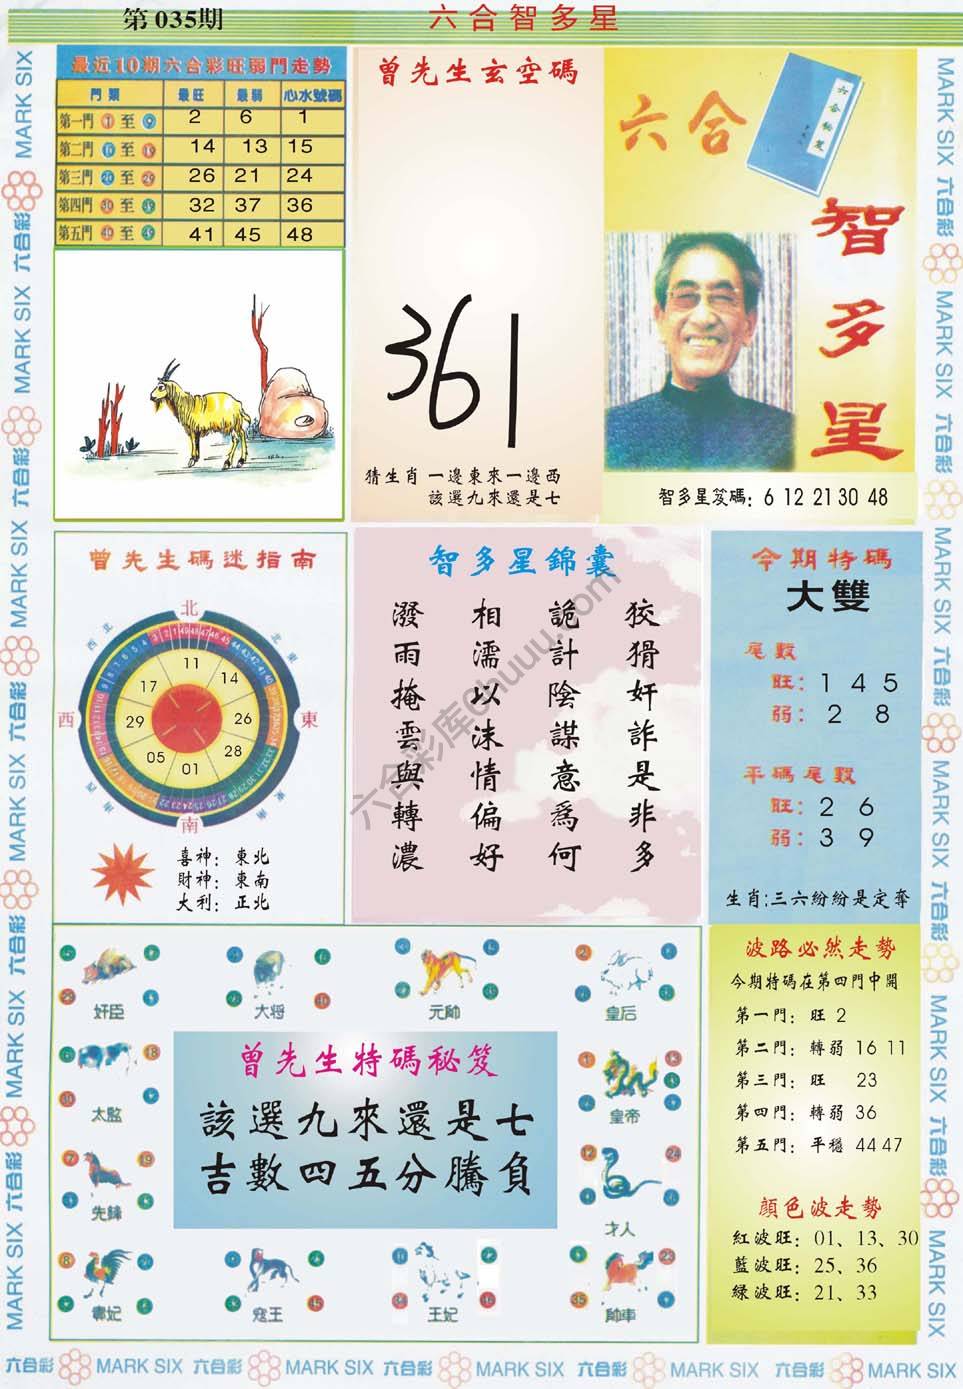 第 035期
六合智多星
最近10期六合彩旺弱門走勢
門類 最旺 最弱 心水號碼
第一門 1 至 9 2 6 1
第二門 10 至 19 14 13 15
第三門 20 至 29 26 21 24
第四門 30 至 39 32 37 36
第五門 40 至 49 41 45 48
曾先生玄空碼
361
猜生肖 一邊東來一邊西
該選九來還是七
六合
六合秘笈
智多星
智多星笈碼: 6 12 21 30 48
曾先生碼迷指南
北
東北
東
東南
南
西南
西
西北
11
14
26
28
01
05
29
17
喜神: 東北
財神: 東南
大利: 正北
智多星錦囊
狡猾奸詐是非多
詭計陰謀意為何
相濡以沫情偏好
潑雨掩雲與轉濃
今期特碼
大雙
尾數
旺: 1 4 5
弱: 2 8
平碼尾數
旺: 2 6
弱: 3 9
生肖:三六紛紛是定奪
奸臣
大將
元帥
皇后
太監
皇帝
先鋒
才人
賣妃
寇王
王妃
帥車
曾先生特碼秘笈
該選九來還是七
吉數四五分騰負
波路必然走勢
今期特碼在第四門中開
第一門: 旺 2
第二門: 轉弱 16 11
第三門: 旺 23
第四門: 轉弱 36
第五門: 平穩 44 47
顏色波走勢
紅波旺: 01、13、30
藍波旺: 25、36
綠波旺: 21、33
六合彩 MARK SIX 六合彩 MARK SIX 六合彩 MARK SIX 六合彩 MARK SIX 六合彩 MARK SIX